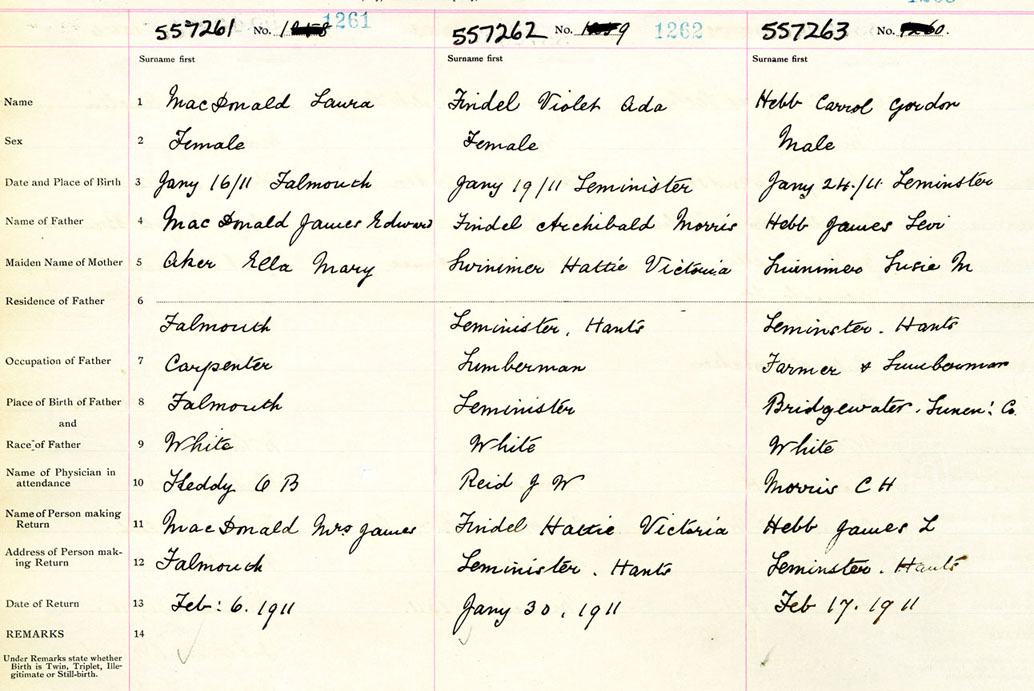 557261 No. 1261 557262 No. 9 1262 557263 No.
Surname first Surname first Surname first
Name 1 MacDonald Laura Findel Violet Ada Hebb Carrol Gordon
Sex 2 Female Female Male
Date and Place of Birth 3 Jany 16/11 Falmouth Jany 19/11 Leminister Jany 24./11 Leminster
Name of Father 4 MacDonald James Edward Findel Archibald Morris Hebb James Levi
Maiden Name of Mother 5 Aker Ella Mary Swinimer Hattie Victoria Susie M
Residence of Father 6
Falmouth Leminister, Hants Leminster. Hants
Occupation of Father 7 Carpenter Lumberman Farmer & Lumberman
Place of Birth of Father 8 Falmouth Leminister Bridgewater. Lunen: Co.
and
Race of Father 9 White White White
Name of Physician in
attendance 10 Keddy O B Reid J W Morris C H
Name of Person making
Return 11 MacDonald Mrs James Findel Hattie Victoria Hebb James L
Address of Person mak-
ing Return 12 Falmouth Leminister. Hants Leminster. Hants
Date of Return 13 Feb: 6. 1911 Jany 30, 1911 Feb 17. 1911
REMARKS 14
Under Remarks state whether
Birth is Twin, Triplet, Ille-
gitimate or Still-birth.